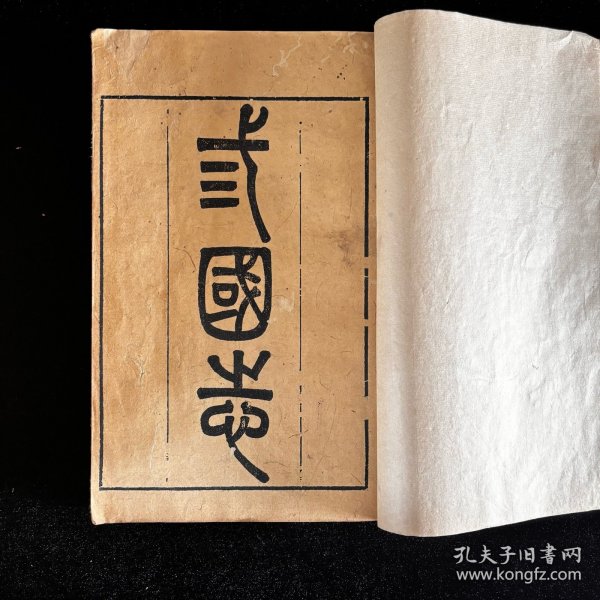 弎國志
孔夫子旧書网
www.kongfz.com